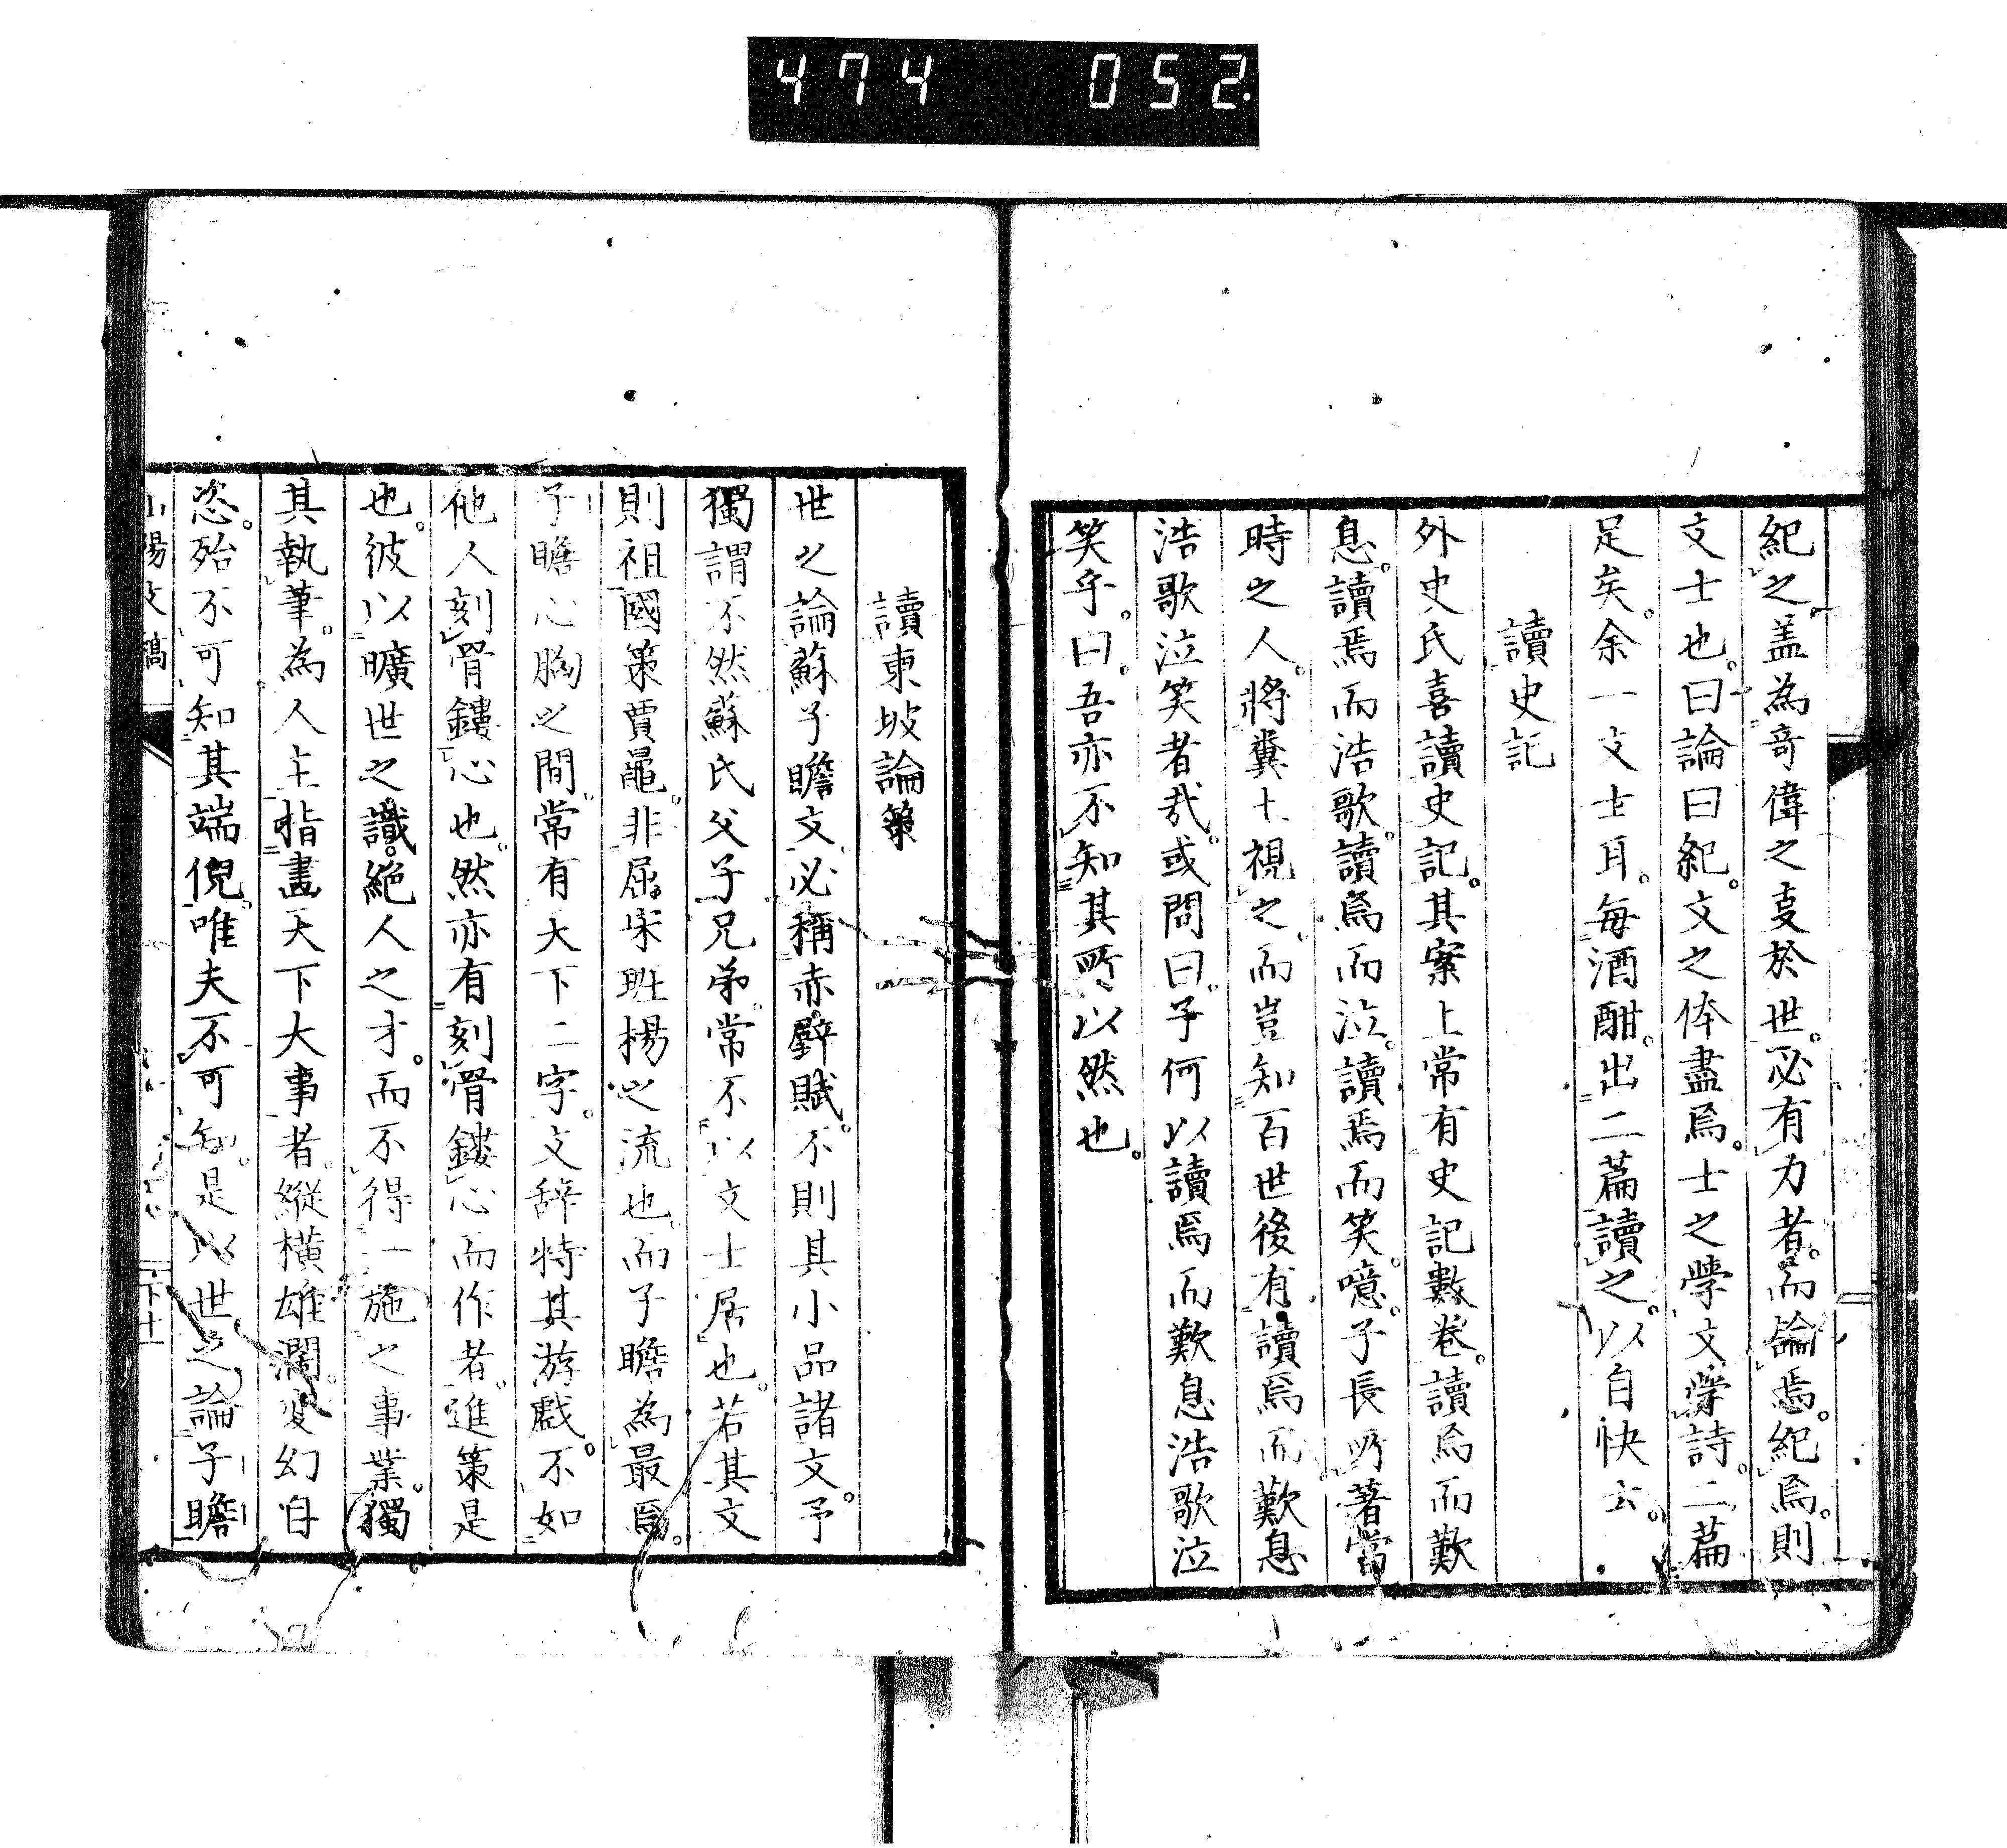 474 052
紀之。盖為竒偉之叓於世。必有力者。而論焉。紀焉。則
文士也。曰論曰紀。文之体盡焉。士之學文學詩。二篇
足矣。余一文士耳。毎酒酣。出二篇讀之。以自快云。
讀史記
外史氏喜讀史記。其案上常有史記數巻。讀焉而歎
息。讀焉而浩歌。讀焉而泣。讀焉而笑。噫。子長所著當
時之人。將糞土視之。而豈知百世後有讀焉而歎息
浩歌泣笑者哉。或問曰。子何以讀焉而歎息浩歌泣
笑乎。曰。吾亦不知其所以然也。
讀東坡論策
世之論蘇子瞻文必稱赤壁賦。不則其小品諸文。予
獨謂不然蘇氏父子兄弟。常不以文士居也。若其文
則祖國策賈鼂。非屈宋班楊之流也。而子瞻為最焉。
子瞻心胸之間。常有大下二字。文辞特其游戯。不如
他人刻骨鏤心也。然亦有刻骨鏤心而作者。進策是
也。彼以曠世之識。絶人之才。而不得一施之事業。獨
其執筆。為人主指畫天下大事者。縱横雄濶。変幻自
恣。殆不可知其端倪。唯夫不可知。是以世之論子瞻
山陽文稿
下十